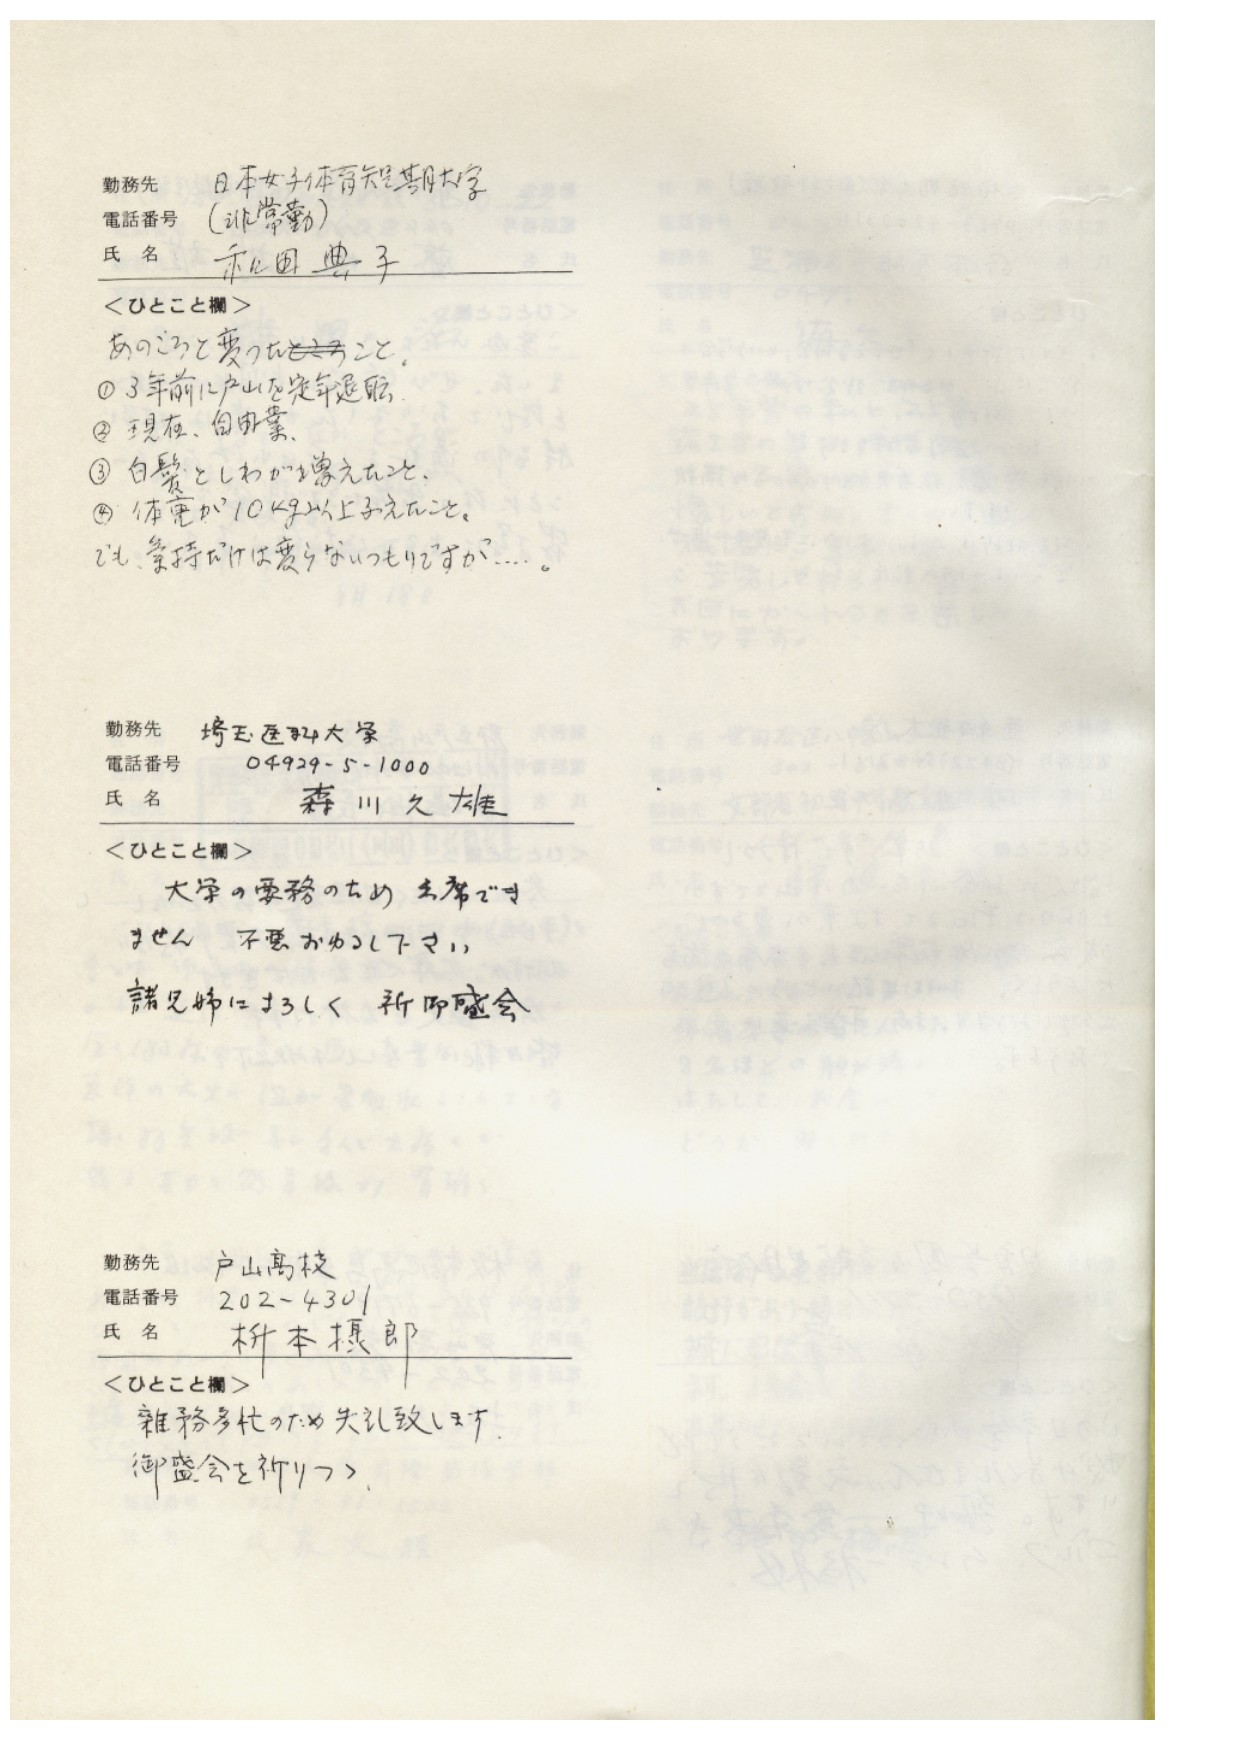 勤務先 日本女子体育短期大学
電話番号 (非常勤)
氏名 和田典子
<ひとこと欄>
あのころと変ったところこと。
① 3年前に戸山を定年退転.
② 現在、自由業、
③ 白髪としわが増えたこと、
④ 体重が10kg以上ふえたこと。
でも、気持だけは変らないつもりですが.....。
勤務先 埼玉医科大学
電話番号 04929-5-1000
氏名 森川久雄
<ひとこと欄>
大学の要務のため 出席でき
ません 不悪おゆるし下さい
諸兄姉によろしく 祈御盛会
勤務先 戸山高校
電話番号 202-4301
氏名 枡本 郎
<ひとこと欄>
雑務多忙のため失礼致します.
御盛会を祈りつつ